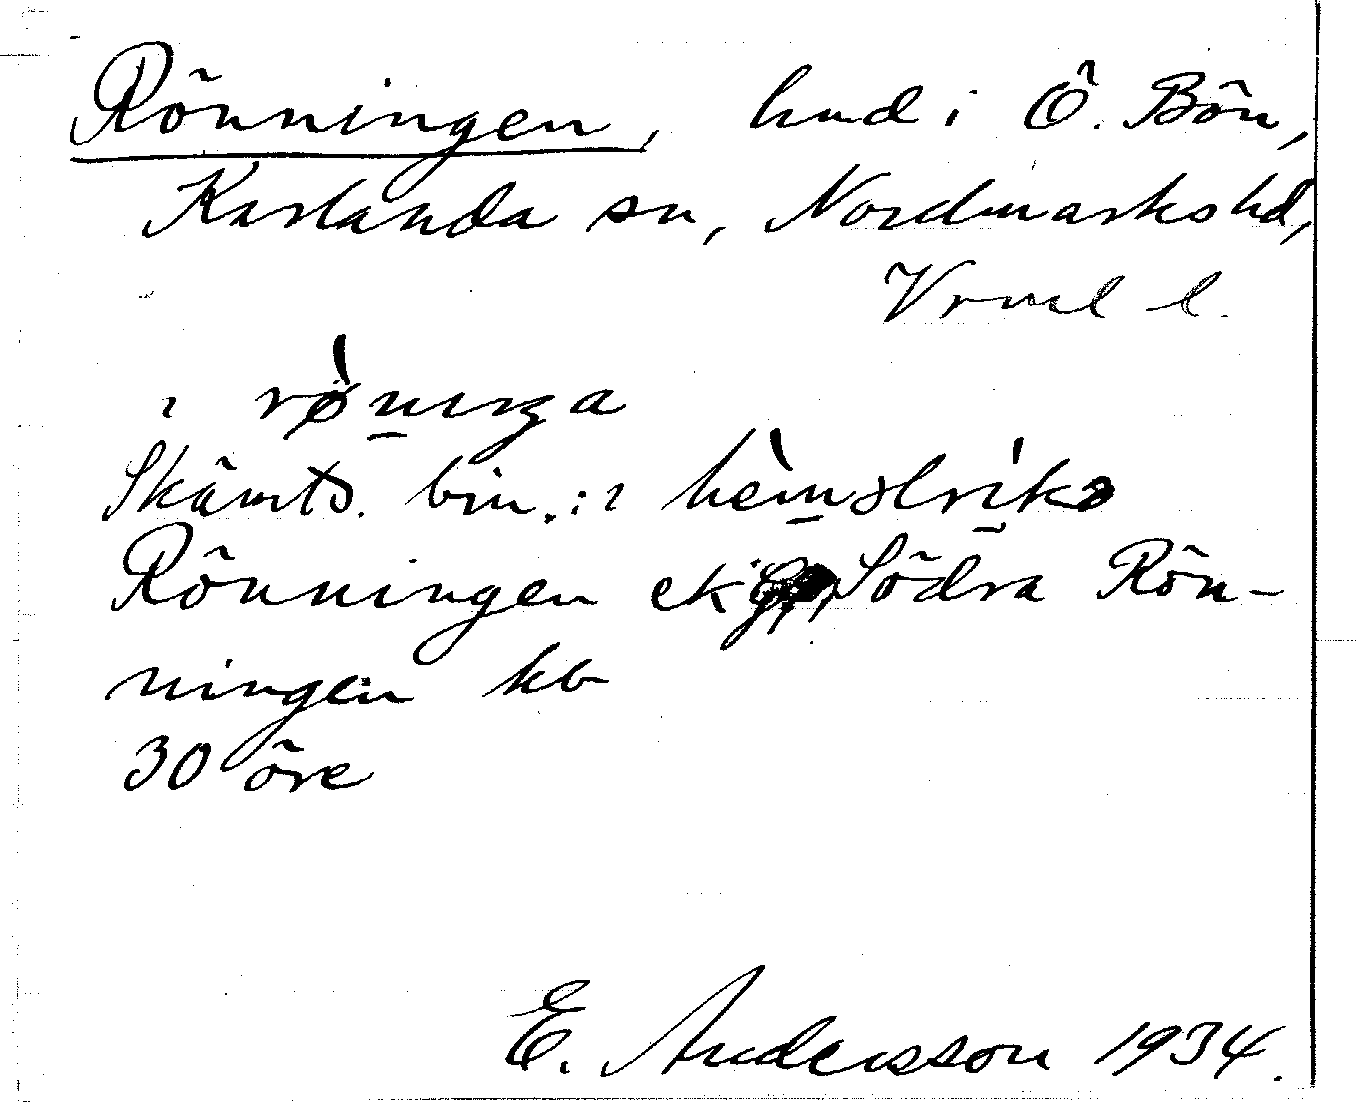 Rönningen, hmd i Ö. Bön,
Karlanda sn, Nordmarks hd,
Vrml l.
ı rø̀nıŋa
Skämts. bin.: ı
Rönningen ek Södra Rön-
ningen kb
30 öre
E. Andersson 1934.